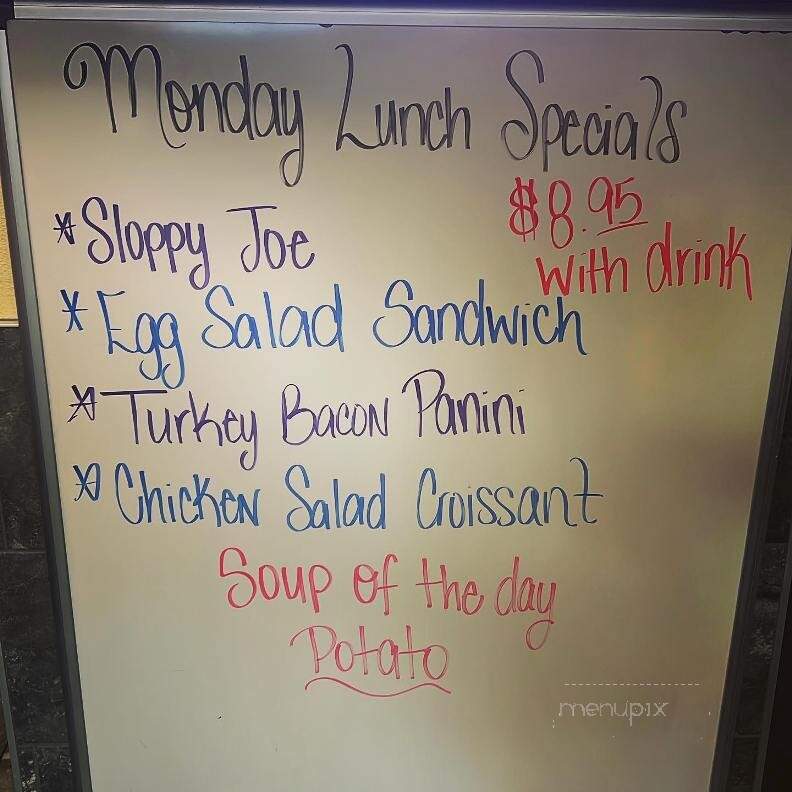 Monday Lunch Specials
$8.95
with drink
* Sloppy Joe
* Egg Salad Sandwich
* Turkey Bacon Panini
* Chicken Salad Croissant
Soup of the day
Potato
menupix